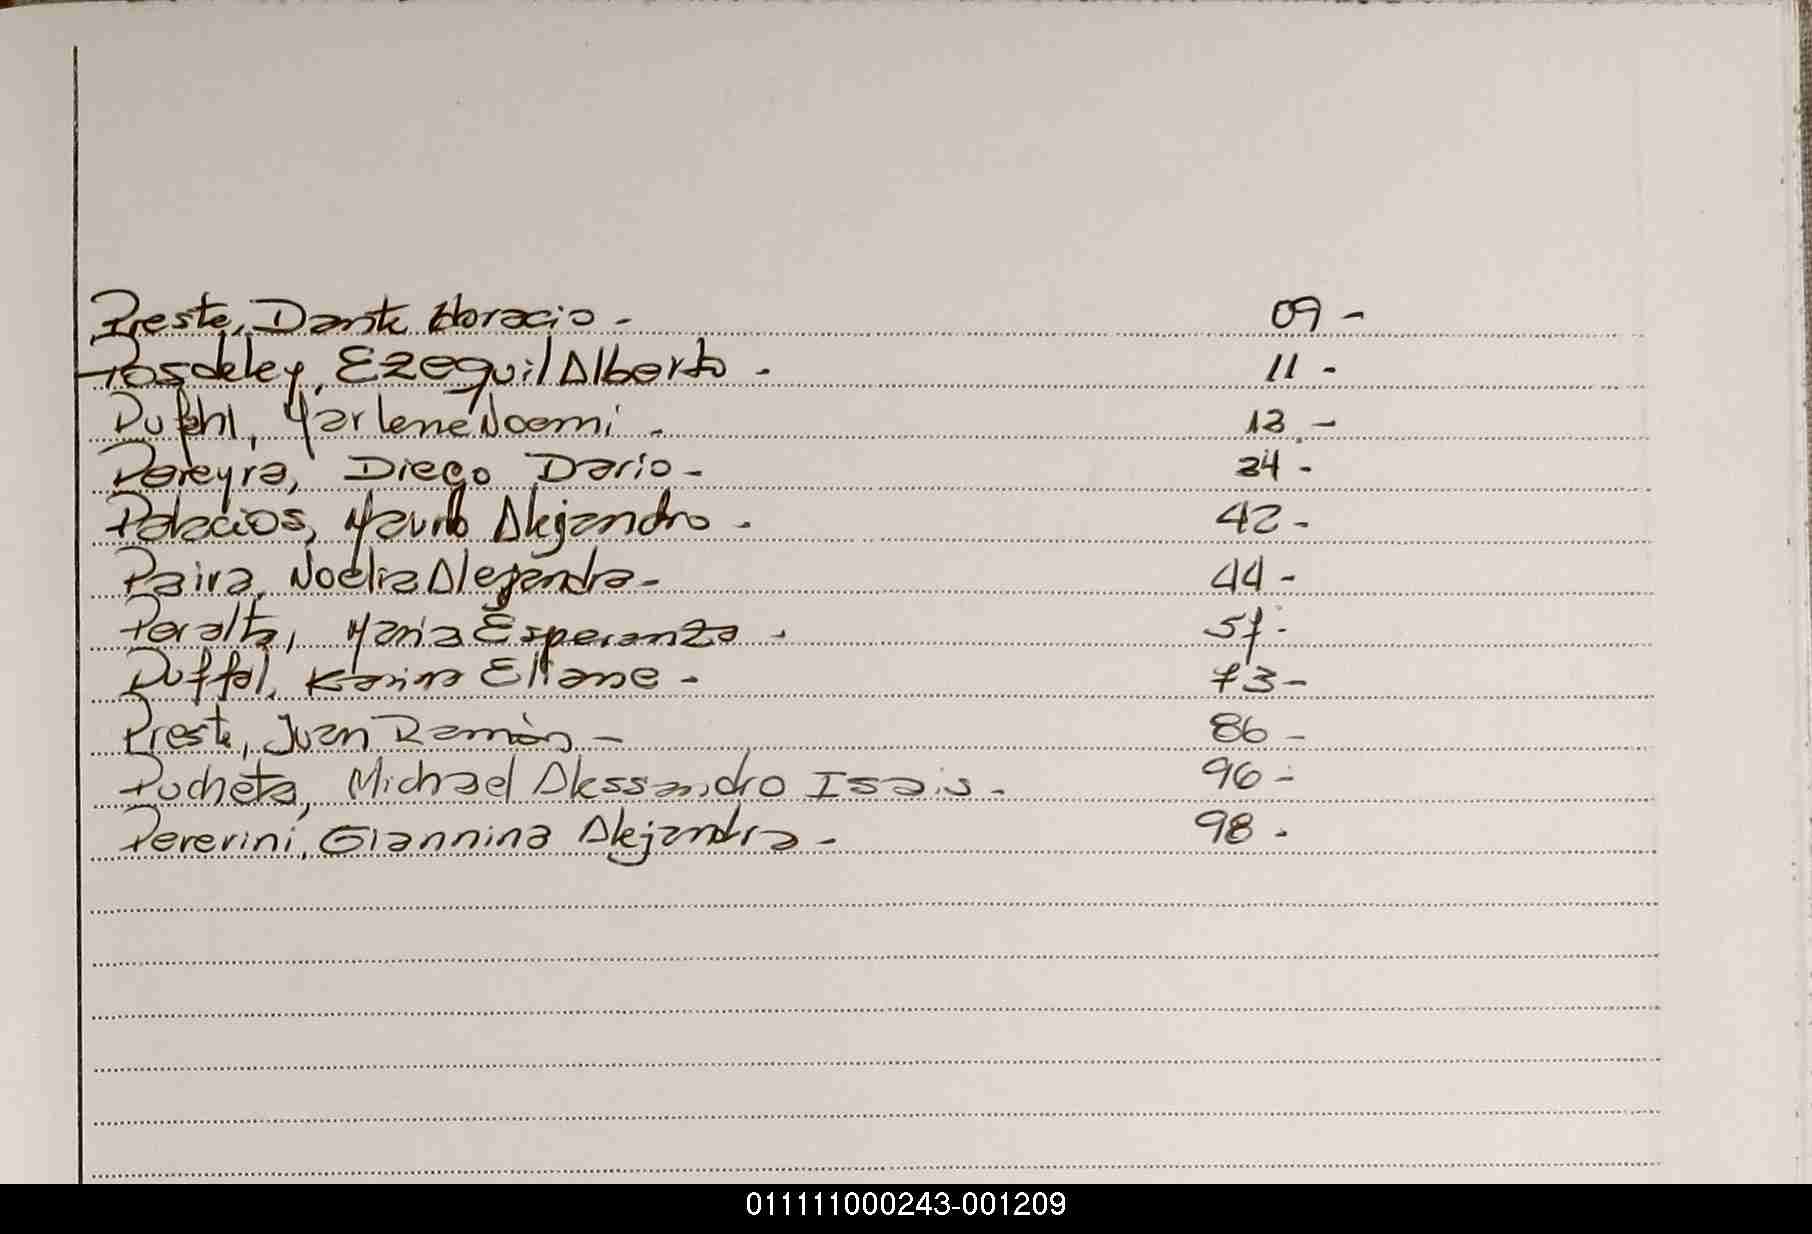 Preste, Dante Horacio - 09 -
Posdeley, Ezequil Alberto - 11 -
Marlene Noemi - 13 -
Pereyra, Diego Dario - 34 -
Palacios, Mauro Alejandro - 42 -
Paira, Noelia Alejandra - 44 -
Peralta, Maria Esperanza - 57 -
Puffal, Karina Eliane - 73 -
Preste, Juan Ramòn - 86 -
Pucheta, Michael Alessandro Isais - 96 -
Pererini, Giannina Alejandra - 98 -
011111000243-001209